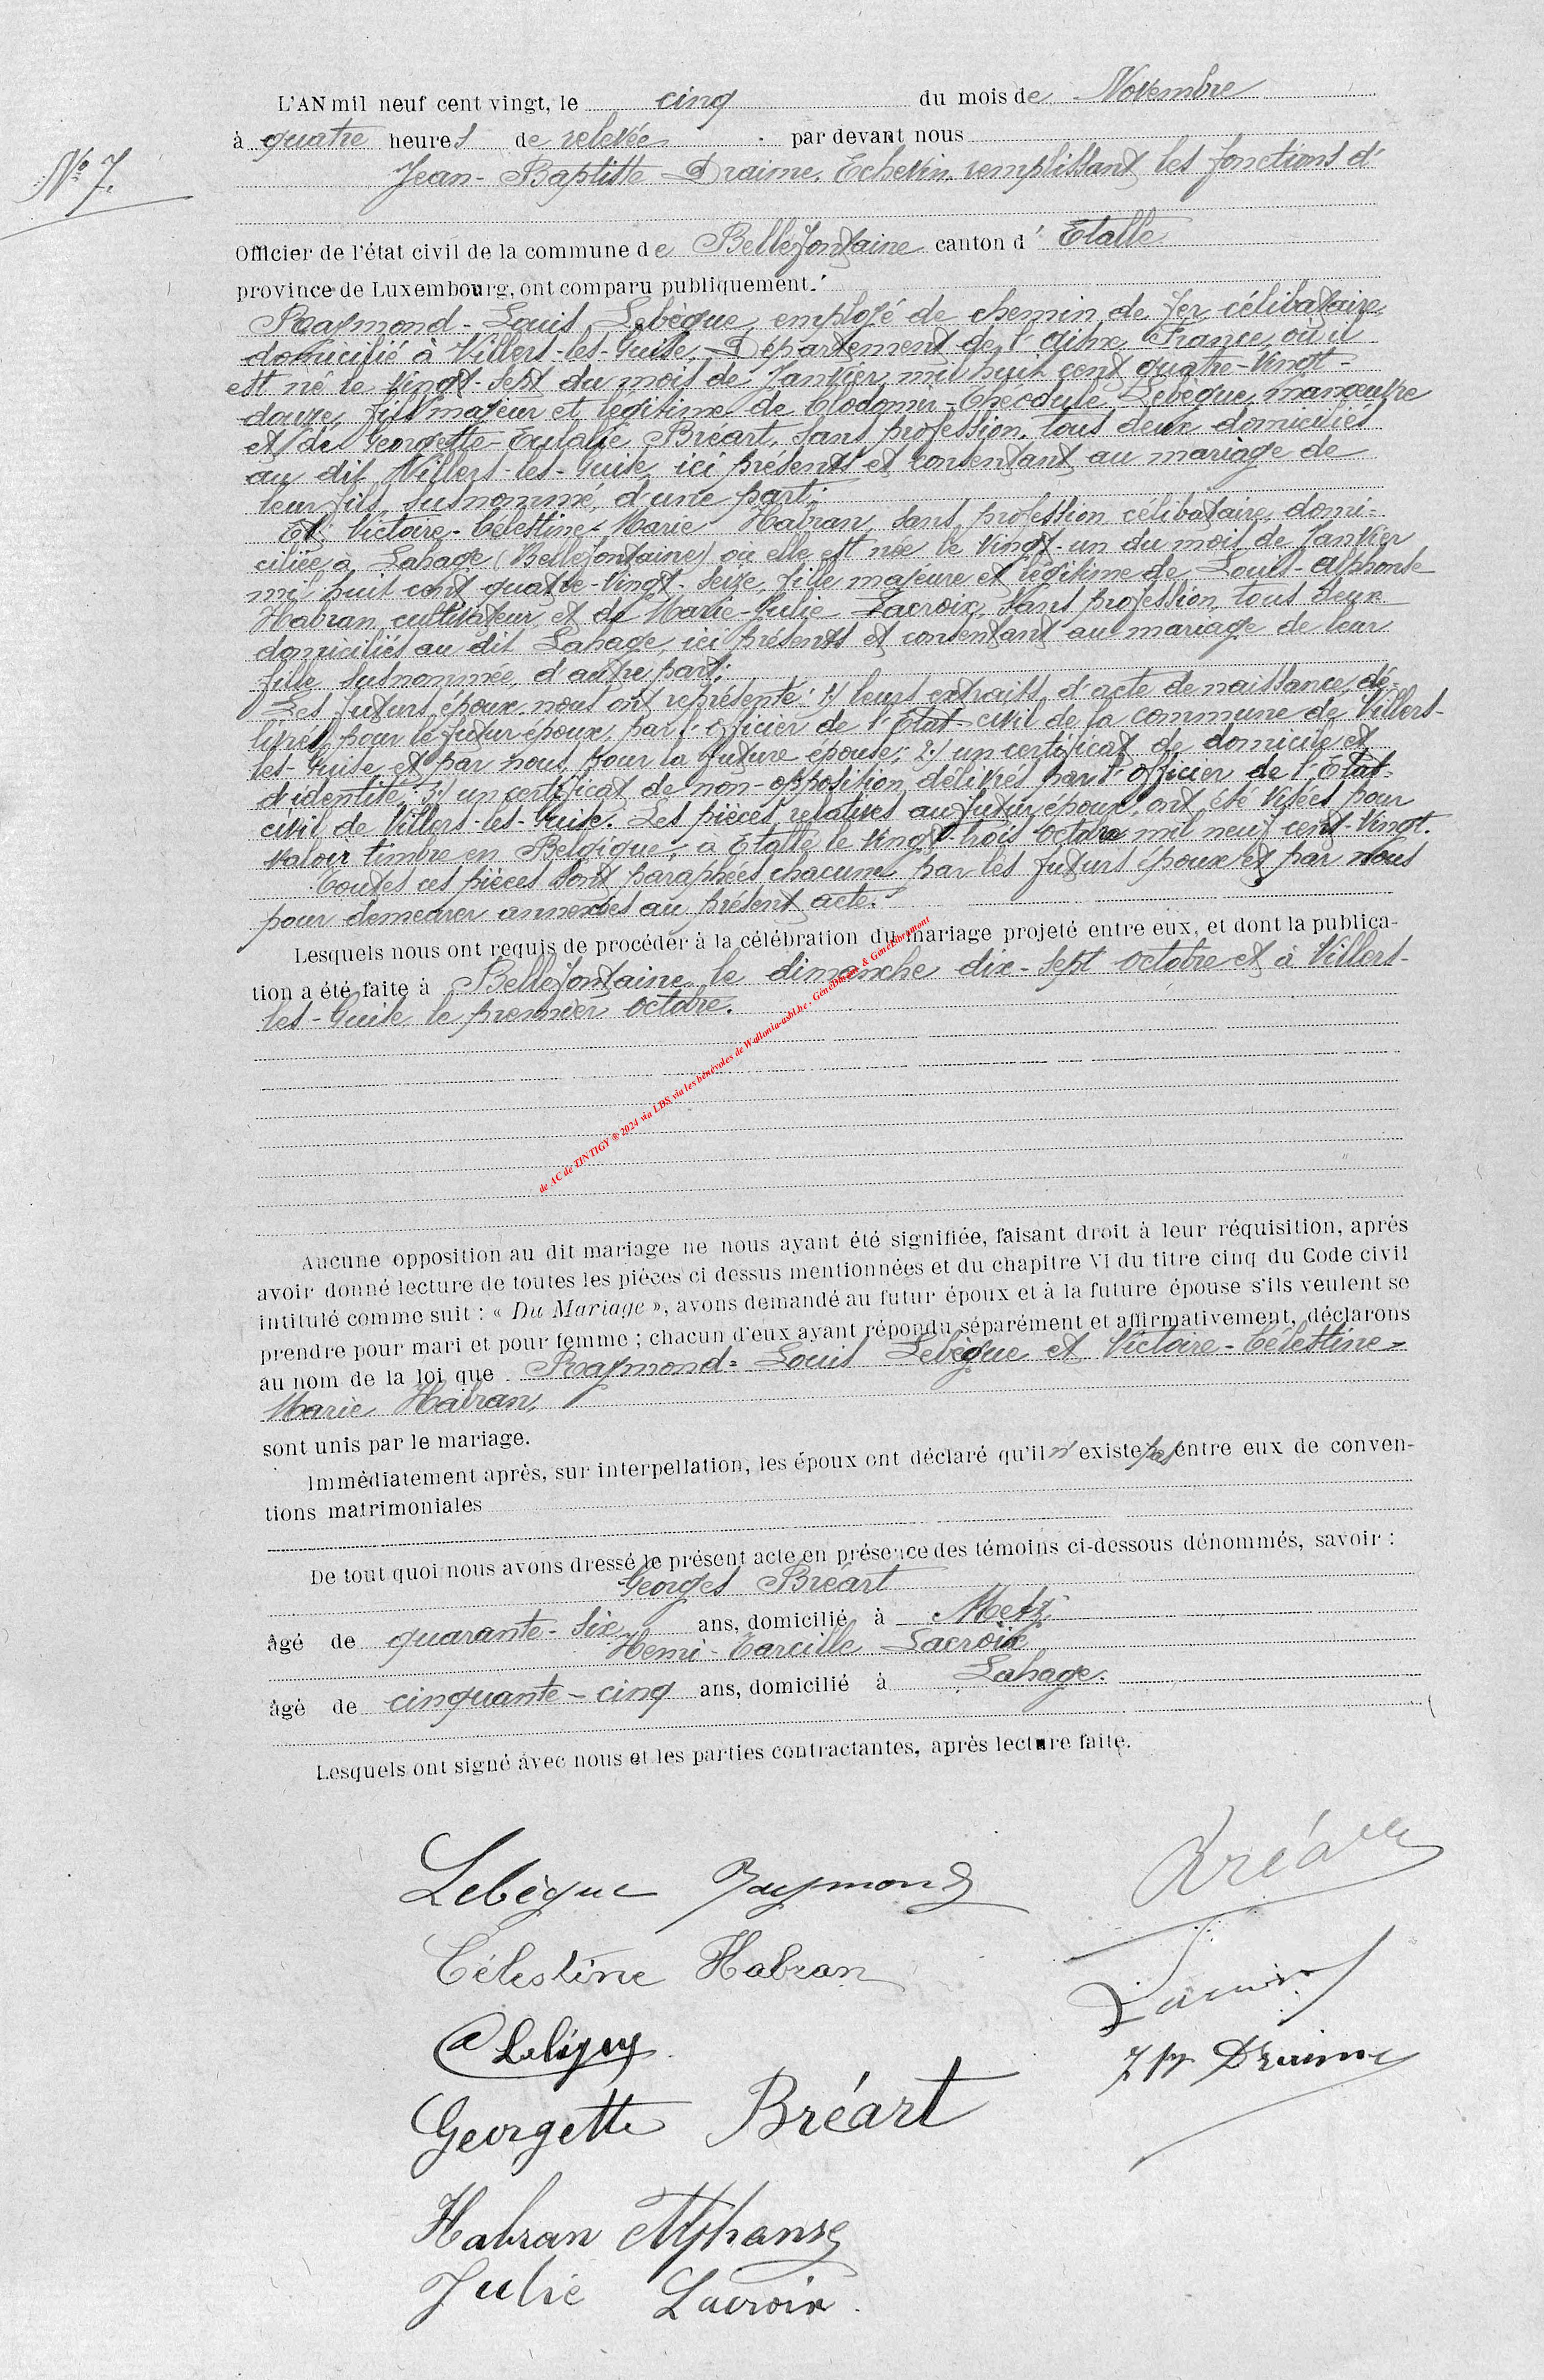 N° 7.
L'AN mil neuf cent vingt, le cinq du mois de Novembre
à quatre heures de relevée par devant nous
Jean-Baptiste Draime, Echevin remplissant les fonctions d'
Officier de l'état civil de la commune de Bellefontaine canton d' Etalle
province de Luxembourg, ont comparu publiquement.
Raymond-Louis Lebègue, employé de chemin de fer célibataire
domicilié à Villers-les-Guise, Département de l'Aisne, France, où il
est né le vingt-sept du mois de Janvier mil huit cent quatre-vingt-
douze, fils majeur et légitime de Clodomir-Théodule Lebègue, manœuvre
et de Georgette-Eulalie Bréart, sans profession, tous deux domiciliés
au dit Villers-les-Guise, ici présents et consentant au mariage de
leur fils susnommé, d'une part;
Et Victoire-Célestine-Marie Habran, sans profession célibataire, domi-
ciliée à Lahage (Bellefontaine) où elle est née le vingt-un du mois de Janvier
mil huit cent quatre-vingt-seize, fille majeure et légitime de Louis-Alphonse
Habran, cultivateur et de Marie-Julie Lacroix, sans profession, tous deux
domiciliés au dit Lahage, ici présents et consentant au mariage de leur
fille susnommée, d'autre part;
Les futurs époux nous ont représenté: 1) leurs extraits d'acte de naissance, dé-
livrés, pour le futur époux, par l'officier de l'Etat-civil de la commune de Villers-
les-Guise et par nous pour la future épouse; 2) un certificat de domicile et
d'identité; 3) un certificat de non-opposition délivrés par l'officier de l'Etat-
civil de Villers-les-Guise. Les pièces relatives au futur époux, ont été visées pour
valoir timbre en Belgique, à Etalle le vingt-trois octobre mil neuf cent-vingt.
Toutes ces pièces sont paraphées chacune par les futurs époux et par nous
pour demeurer annexées au présent acte.
Lesquels nous ont requis de procéder à la célébration du mariage projeté entre eux, et dont la publica-
tion a été faite à Bellefontaine le dimanche dix-sept octobre et à Villers-
les-Guise le premier octobre.
de AC de TINTIGY ® 2024 via LDS via les bénévoles de Wallonia-asbl.be, GénéBibérie & GénéLibramont
Aucune opposition au dit mariage ne nous ayant été signifiée, faisant droit à leur réquisition, après
avoir donné lecture de toutes les pièces ci dessus mentionnées et du chapitre VI du titre cinq du Code civil
intitulé comme suit : « Du Mariage », avons demandé au futur époux et à la future épouse s'ils veulent se
prendre pour mari et pour femme ; chacun d'eux ayant répondu séparément et affirmativement, déclarons
au nom de la loi que Raymond-Louis Lebègue et Victoire-Célestine-
Marie Habran,
sont unis par le mariage.
Immédiatement après, sur interpellation, les époux ont déclaré qu'il n'existe pas entre eux de conven-
tions matrimoniales
De tout quoi nous avons dressé le présent acte en présence des témoins ci-dessous dénommés, savoir :
Georges Bréart
âgé de quarante-six ans, domicilié à Metz
Henri-Tarcille Lacroix
âgé de cinquante-cinq ans, domicilié à Lahage.
Lesquels ont signé avec nous et les parties contractantes, après lecture faite.
Lebègue Raymond
Bréart
Célestine Habran
Lacroix
C Lebègue
JB Draime
Georgette Bréart
Habran Alphonse
Julie Lacroix.